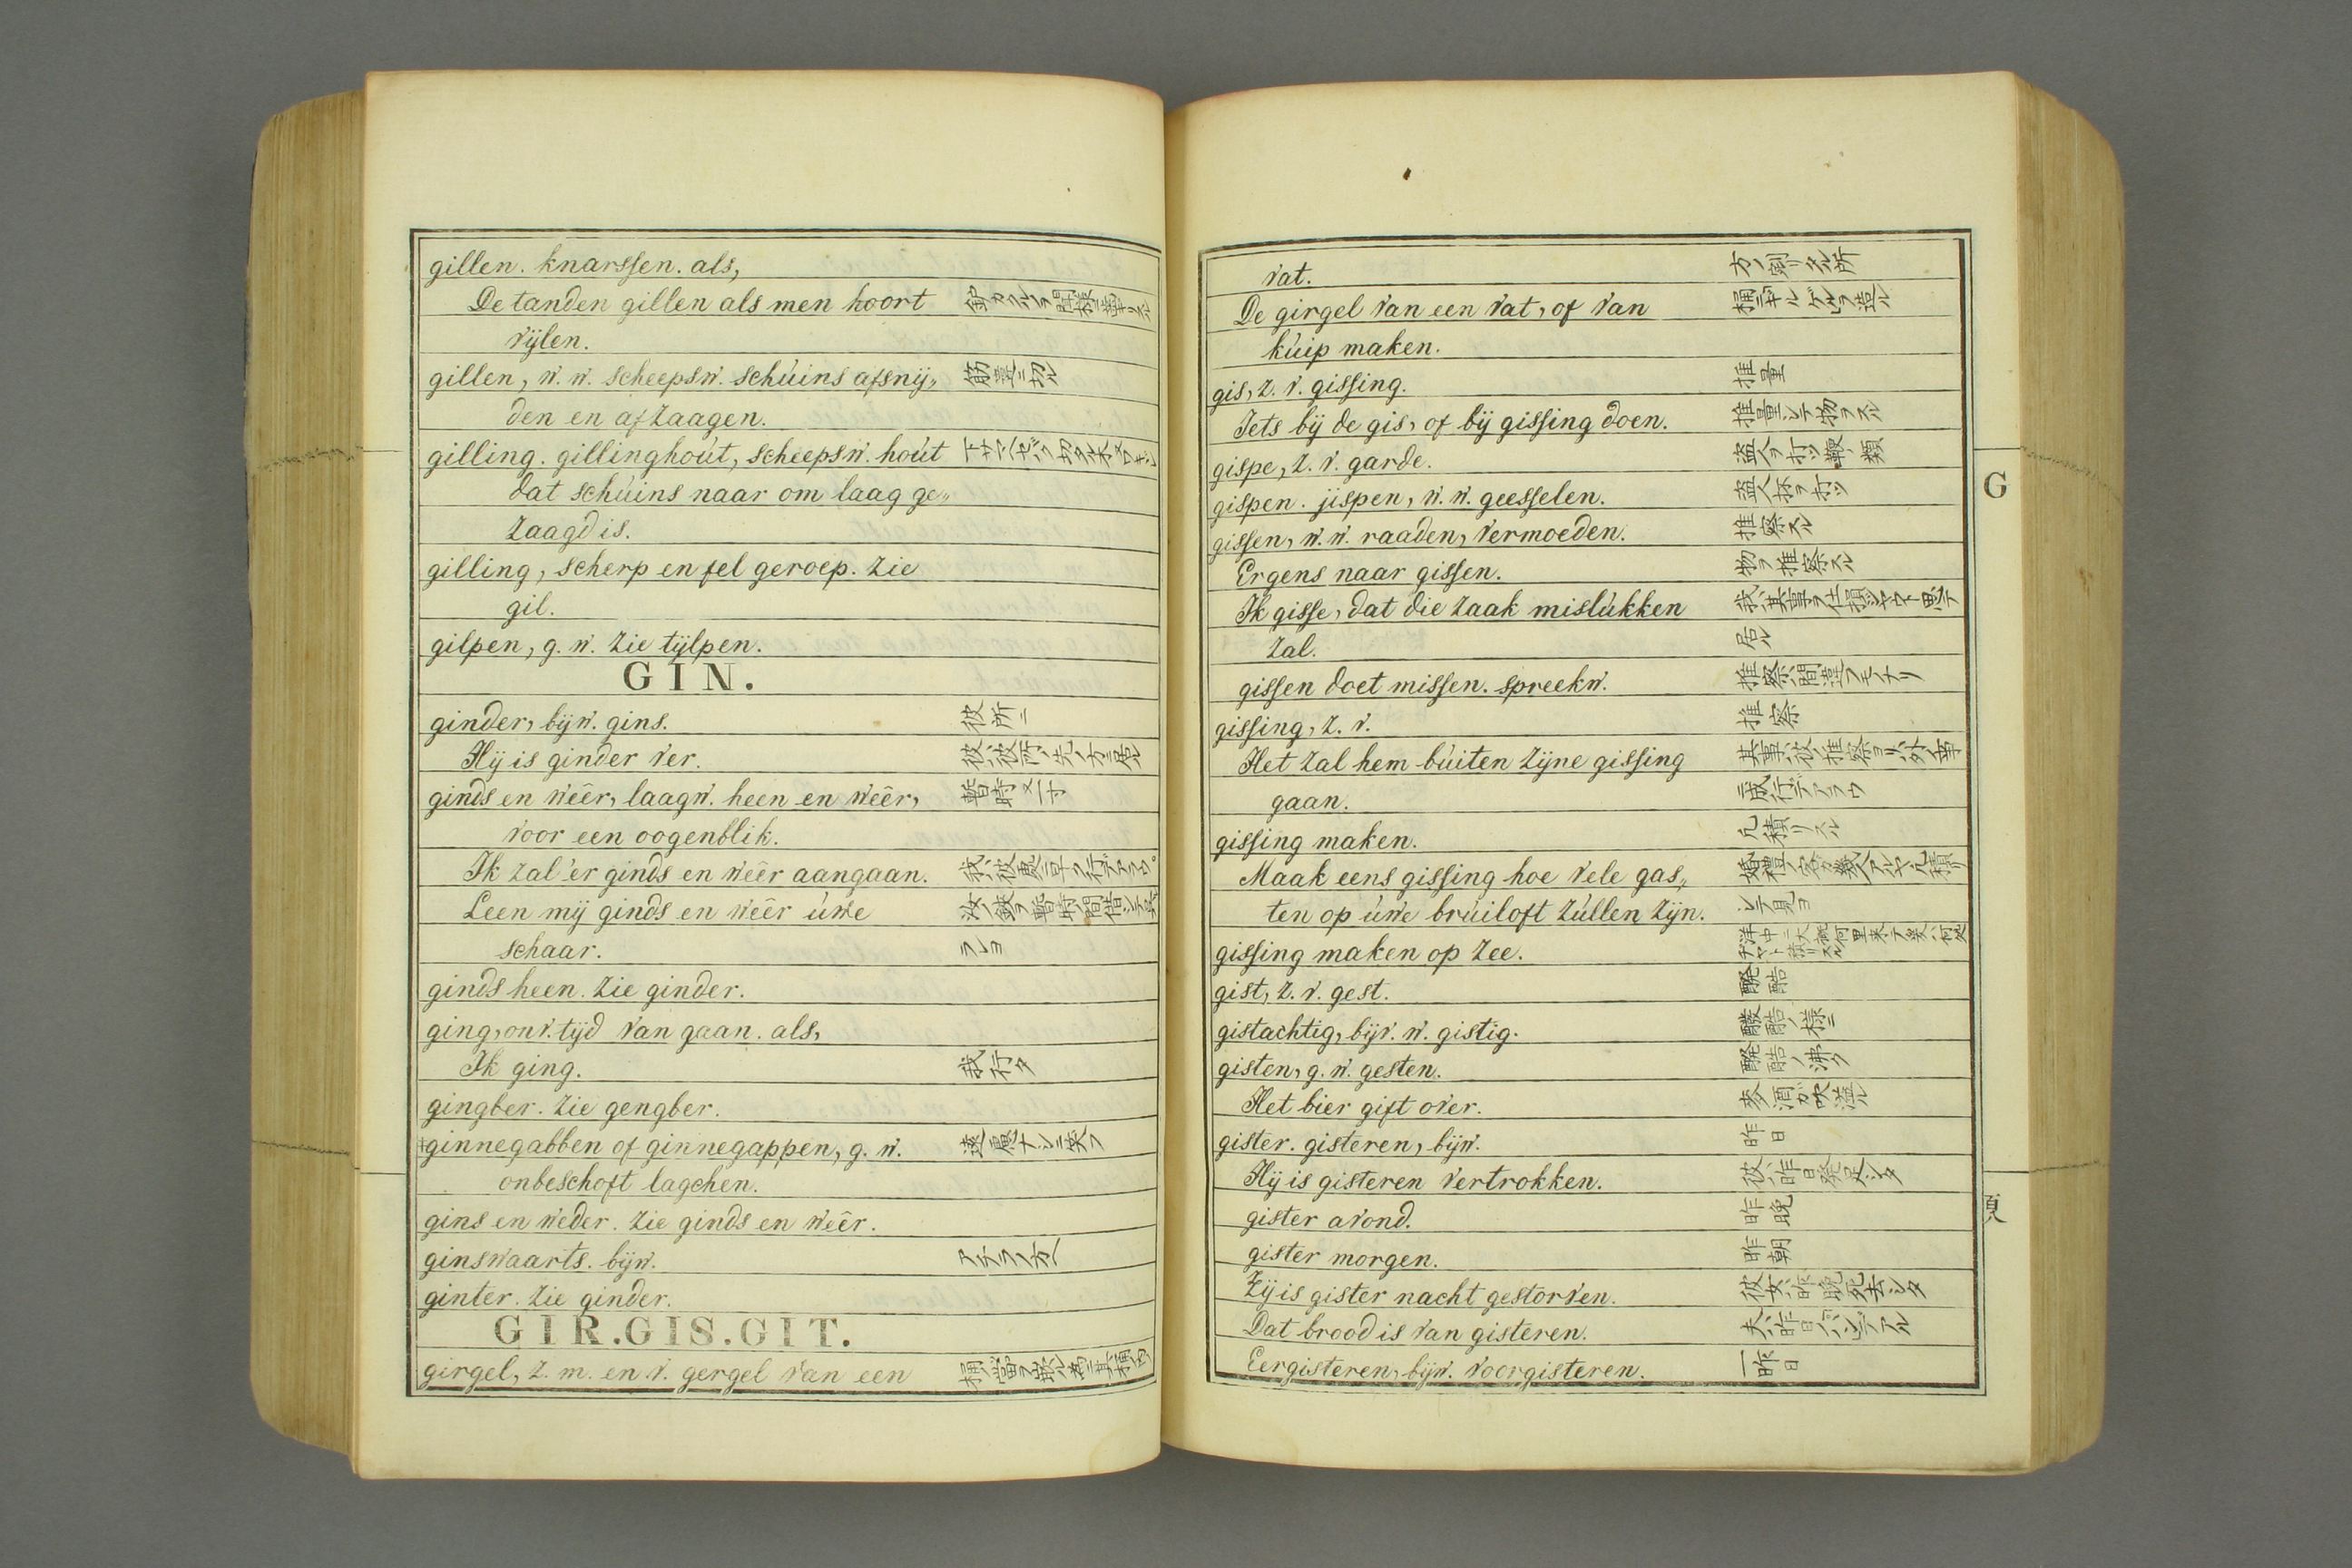 gillen. knarssen. als,
De tanden gillen als men hoort
vijlen.
gillen, w. w. scheepsw. schúins afsnij„ 筋違ニ切ル
den en afzaagen.
gilling. gillinghoút, scheepsw. hoút
dat schúins naar om laag ge„
zaagd is.
gilling, scherp en fel geroep. zie
gil.
gilpen, g. w. zie tijlpen.
GIN.
ginder, bijw. gins. 彼所ニ
Hij is ginder ver.
ginds en weêr, laagw. heen en weêr, 暫時
voor een oogenblik.
Ik zal 'er ginds en weêr aangaan.
Leen mij ginds en weêr úwe
schaar.
ginds heen. zie ginder.
ging, onv. tijd van gaan. als,
Ik ging. 我行タ
gingber. zie gengber.
ginnegabben of ginnegappen, g. w. 遠慮ナシニ笑フ
onbeschoft lagchen.
gins en weder. zie ginds en weêr.
ginswaarts. bijw. アチラノ方ヘ
ginter. zie ginder.
GIR.GIS.GIT.
girgel, z. m. en v. gergel van een
vat.
De girgel van een vat, of van
kúip maken.
gis, z. v. gissing. 推量
Iets bij de gis, of bij gissing doen. 推量シテ物ヲスル
gispe, z. v. garde. 盗人ヲ打ツ鞭ノ類
gispen. jispen, w. w. geesselen. 盗人杯ヲ打ツ
gissen, w. w. raaden, vermoeden. 推察スル
Ergens naar gissen. 物ヲ推察スル
Ik gisse, dat die zaak mislúkken
zal. 居ル
gissen doet missen. spreekw. 推察ハ間違フモノナリ
gissing, z. v. 推察
Het zal hem búiten zijne gissing
gaan.
gissing maken. 凡積リスル
Maak eens gissing hoe vele gas„
ten op úwe brúiloft zúllen zijn. シテ見ヨ
gissing maken op zee.
gist, z. v. gest. 醗酷
gistachtig, bijv. w. gistig. 醗酷ノ様ニ
gisten, g. w. gesten. 醗酷ノ沸ク
Het bier gift over. 麥酒ガ吹溢ル
gister. gisteren, bijw. 昨日
Hij is gisteren vertrokken. 彼ハ昨日発足シタ
gister avond. 昨晩
gister morgen. 昨朝
Zij is gister nacht gestorven. 彼女ハ昨晩死去シタ
Dat brood is van gisteren.
Eergisteren, bijw. voorgisteren. 一昨日
G